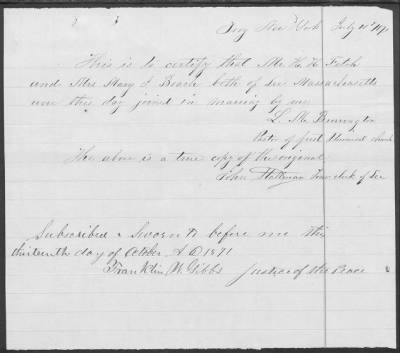 Troy New York July
This is to certify that Mr H. H. Fitch
and Mrs Mary J. Beach both of Lee Massachusetts
were this day joined in marriage by me
L. M.
Pastor of first church
The above is a true copy of the original
John Town clerk of Lee
Subscribed & Sworn to before me this
thirteenth day of October A D 1871
Franklin W. Gibbs Justice of the Peace